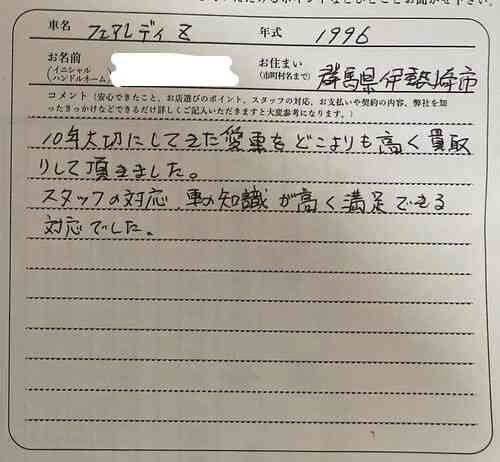 車名 フェアレディ Z 年式 1996
お名前 (イニシャル ハンドルネーム) お住まい (市町村名まで) 群馬県伊勢崎市
コメント(安心できたこと、お店選びのポイント、スタッフの対応、お支払いや契約の内容、弊社を知
ったきっかけなどできるだけ詳しくご記入いただきますと大変参考になります。)
10年大切にしてきた愛車をどこよりも高く買取
りして頂きました。
スタッフの対応 車の知識が高く満足できる
対応でした。